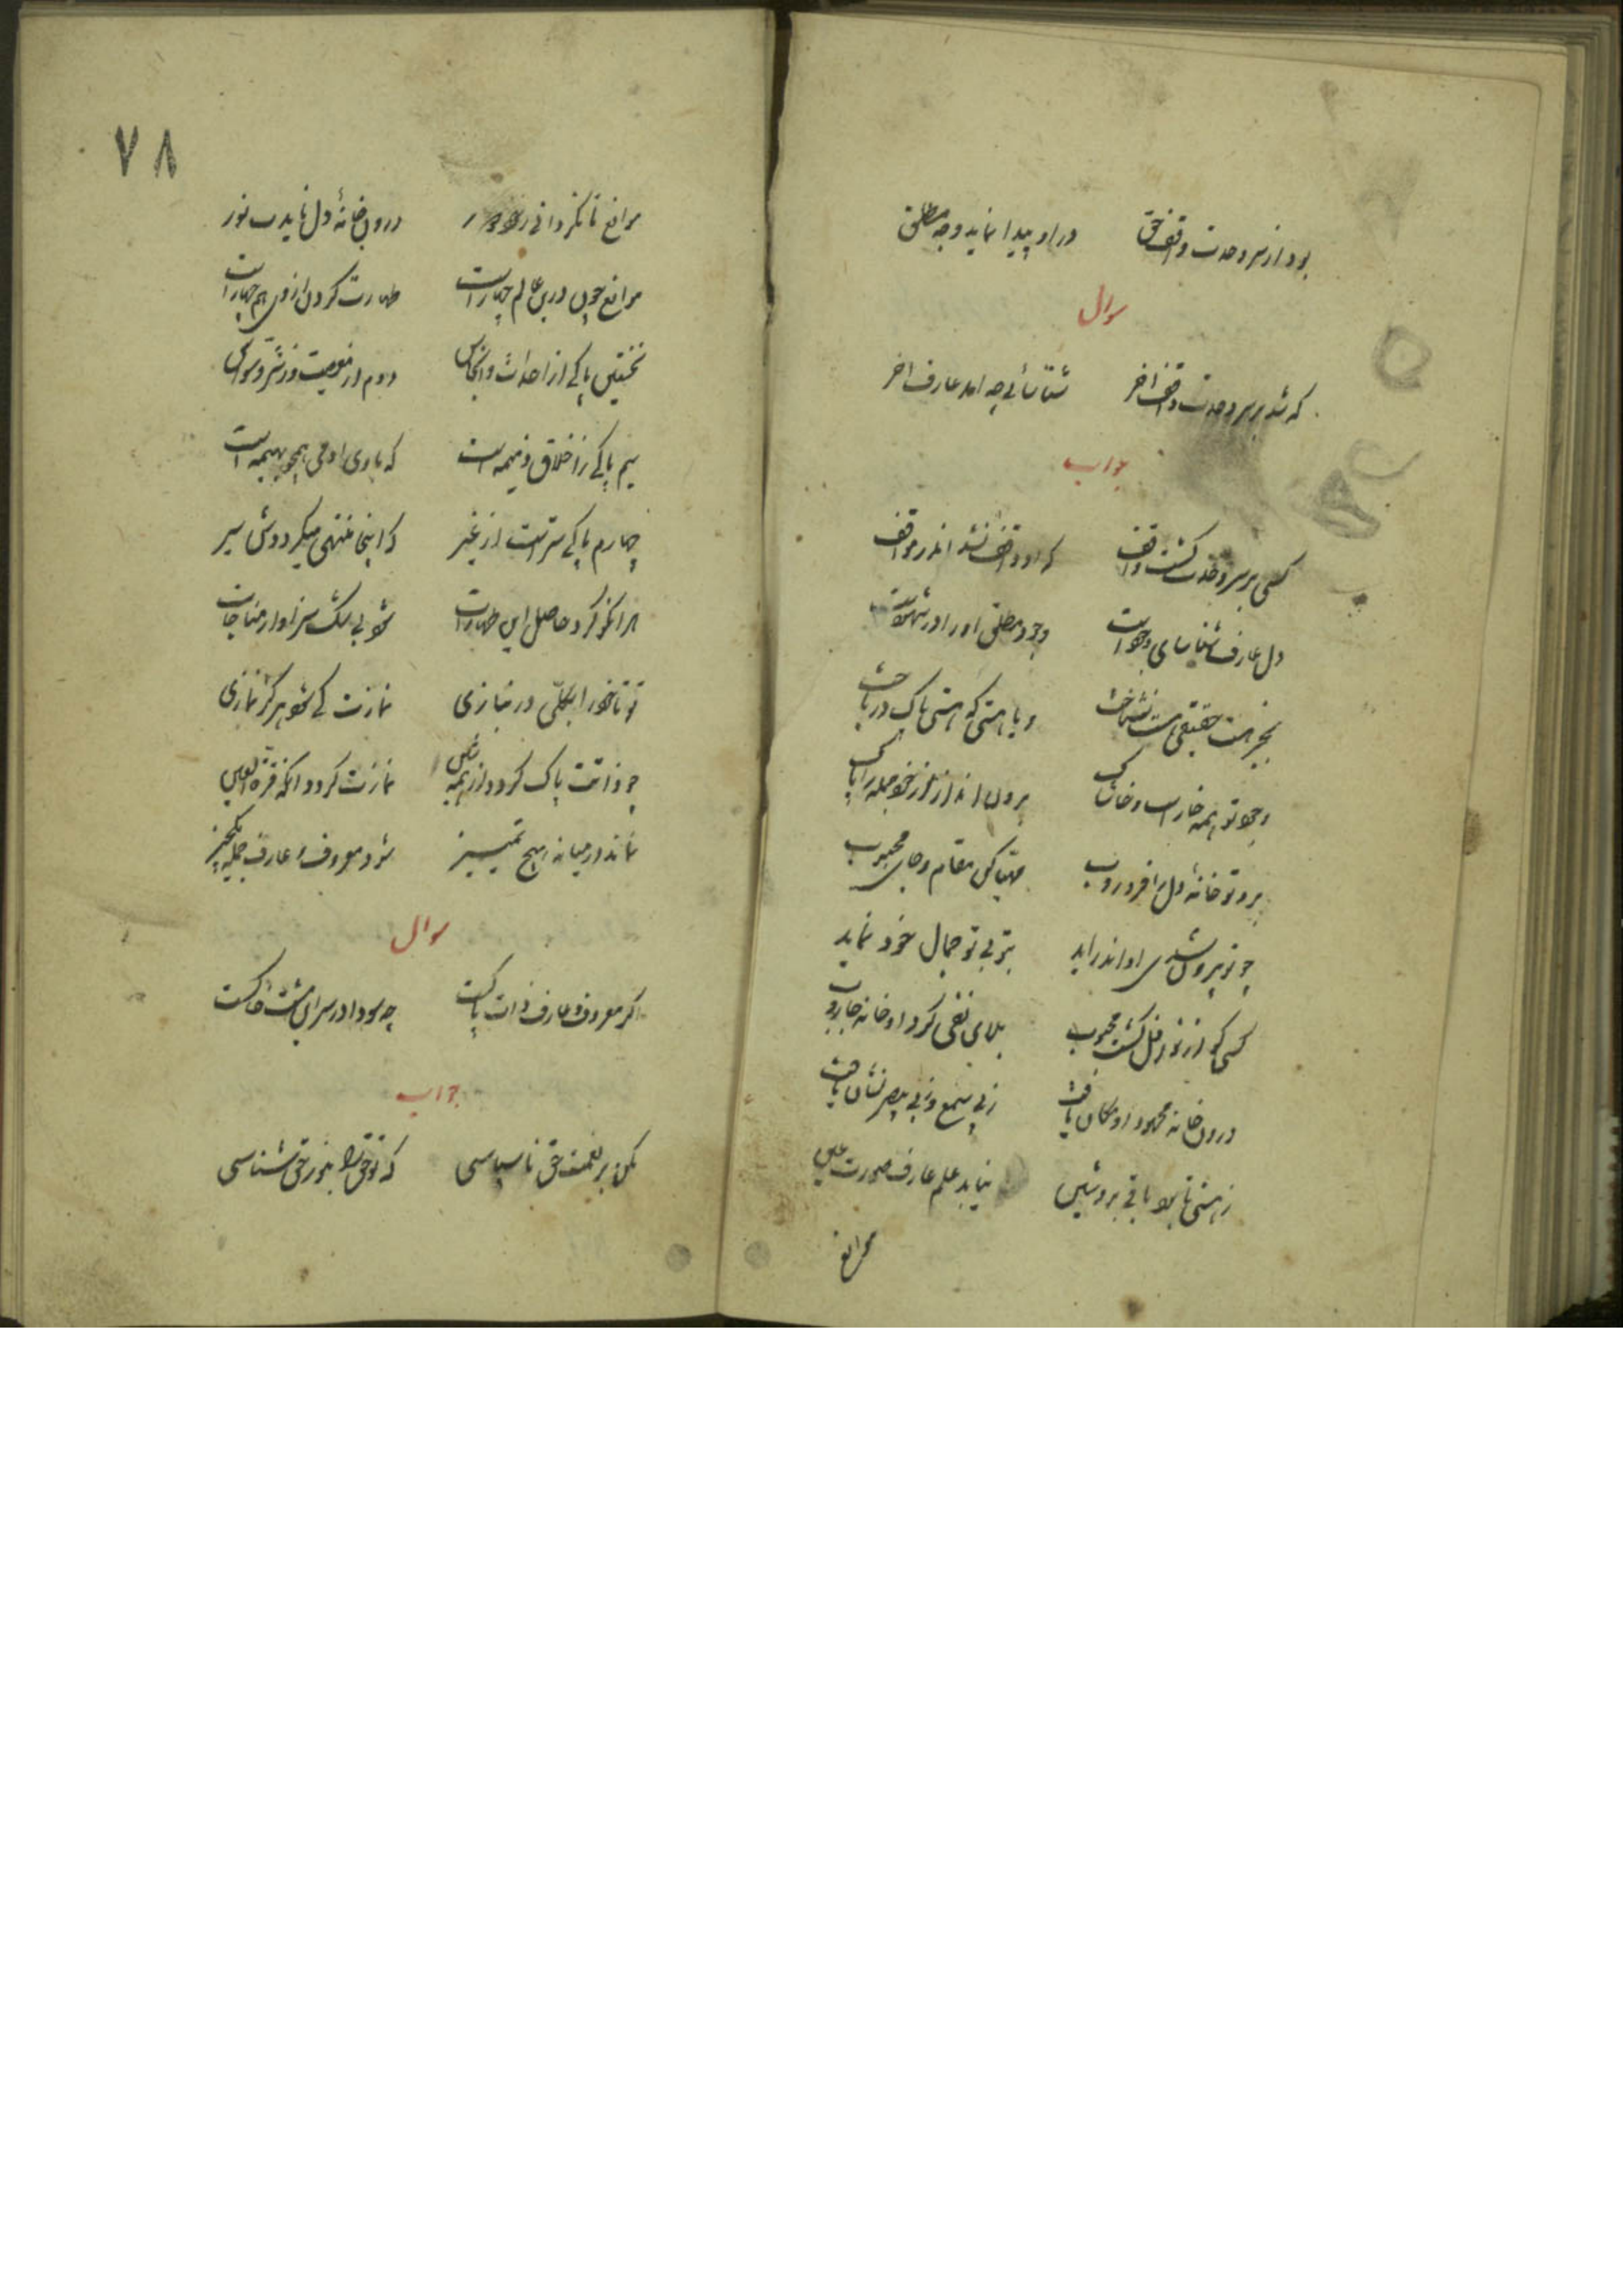 بود از سر وحدت واقف حق در او پیدا نماید وجه مطلق
سوال
که شد بر سر وحدت واقف اخر شناسائی چه امد عارف اخر
جواب
کسی بر سر وحدت گشت واقف که او واقف نشد اندر مواقف
دل عارف شناسای وجود است وجود مطلق او را در شهود است
بجز هست حقیقی هست نشناخت و یا هستی که هستی پاک در باخت
وجود تو همه خار است و خاشاک برون انداز از خود جمله را پاک
برو تو خانه دل را فرو روب مهیا کن مقام و جای محبوب
چو تو بیرون شدی او اندر اید بتو بی تو جمال خود نماید
کسی کو از نوافل گشت محبوب بلای نفی کرد او خانه جاروب
درون خانه محمود او مکان یافت ز بی یسمع و بی یبصر نشان یافت
ز هستی تا بود باقی برو شین نیابد علم عارف صورت عین
موانع
۷۸
موانع تا نگردانی ز خود دور درون خانه دل نایدت نور
موانع چون درین عالم چهار است طهارت کردن از وی هم چهار است
نخستین پاکی از احداث و انجاس دوم از معصیت وز شر وسواس
سیم پاکی ز اخلاق ذمیمه است که با وی ادمی همچو بهیمه است
چهارم پاکی سر است از غیر که اینجا منتهی میگرددش سیر
هر انکو کرد حاصل این طهارات شود بی شک سزاوار مناجات
تو تا خود را بکلی در نبازی نمازت کی شود هرگز نمازی
چو ذاتت پاک گردد از همه شین نمازت گردد انگه قرة العین
نماند در میانه هیچ تمییز شود معروف و عارف جمله یکچیز
سوال
اگر معروف و عارف ذات پاکست چه سودا در سر این مشت خاکست
جواب
مکن بر نعمت حق ناسپاسی که تو حق را بنور حق شناسی